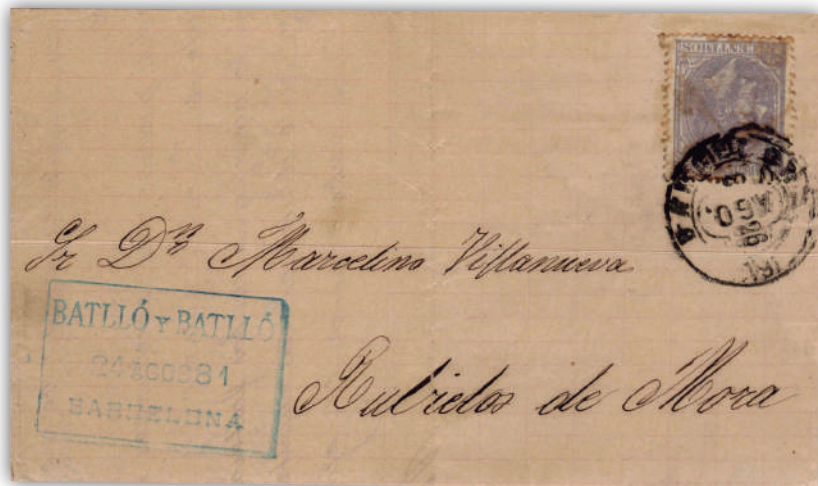 AGO
26
Sr Dn Marcelino Villanueva
BATLLÓ Y BATLLÓ
24 AGOS 81
BARCELONA
Rubielos de Mora